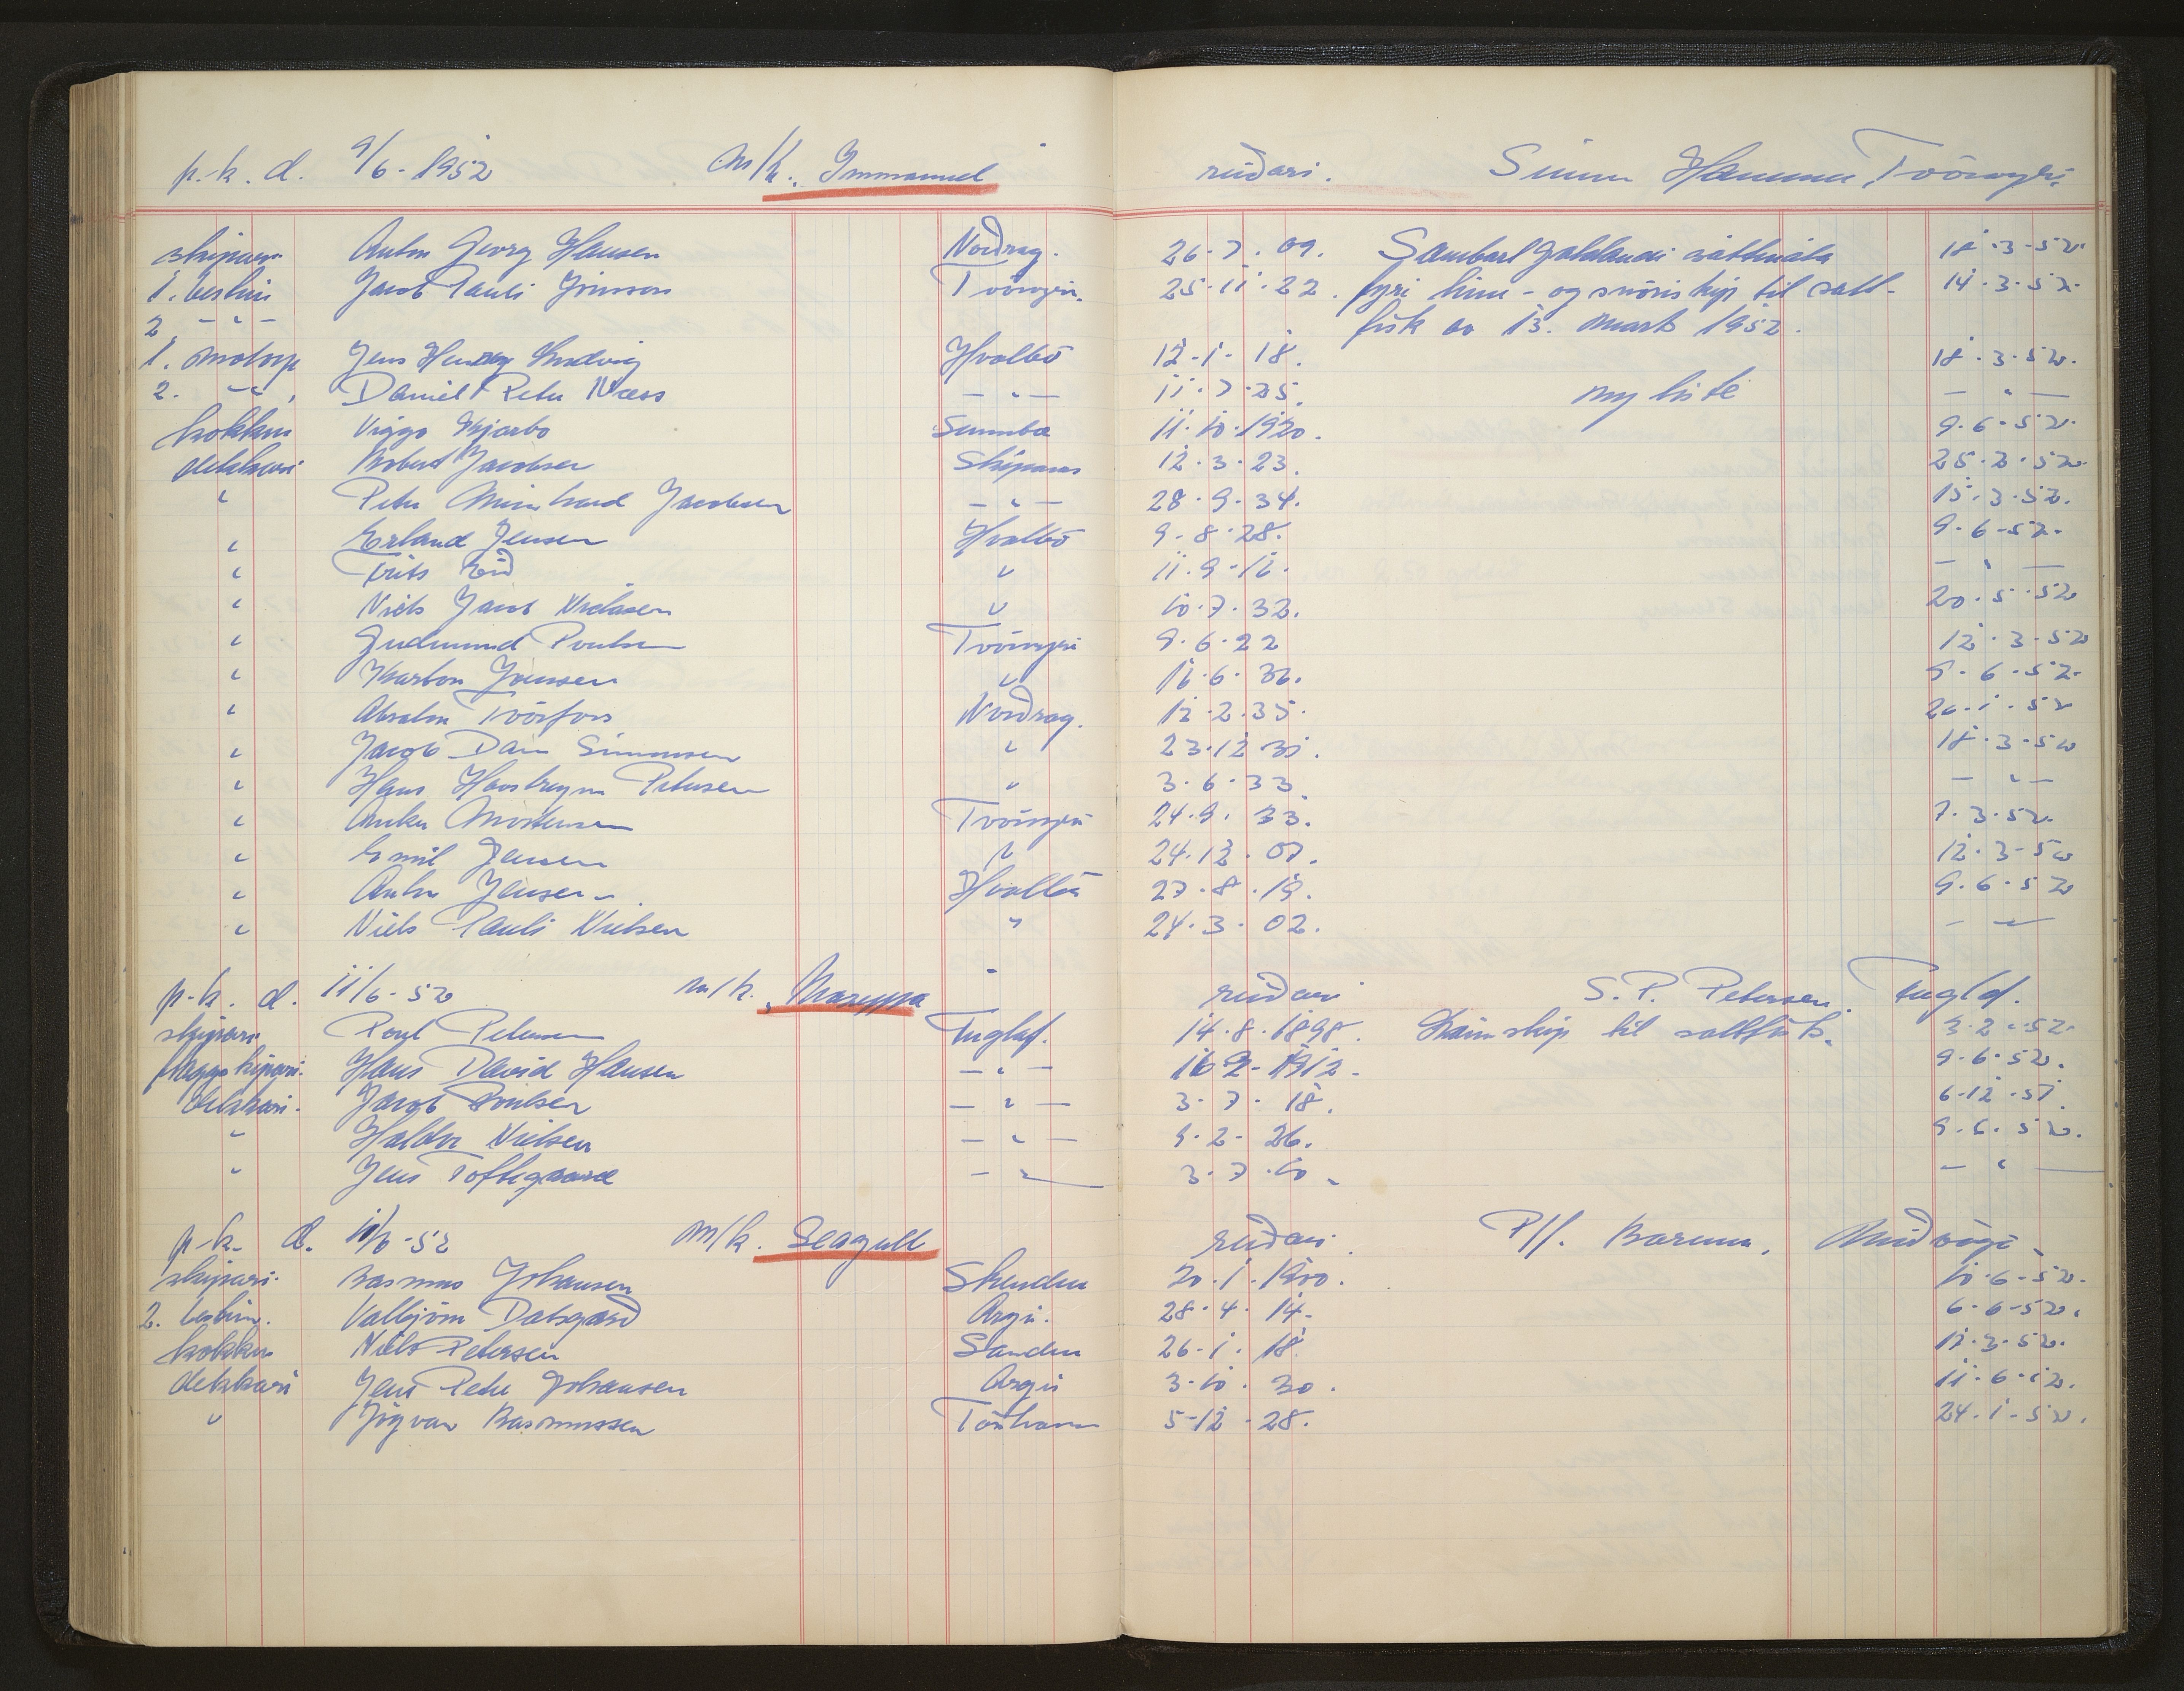 p.k. d. 9/6-1952 m/k. Immanuel reiðari. Simun Hammer, Tvöroyri.
skipari Anton Georg Hansen Norðrag. 26.7.09. Sambart galdandi sáttmála 18.3-52.
1. bestim. Jacob Pauli Joensen Tvöroyri. 25.11.22. fyri línu- og snöriskip til salt- 14.3.52.
2. -"- fisk av 13. mart 1952.
1. motorp Jens Hendrey Ludvig Hvalbö 12-1-18. 18.3.52.
2. -"- Daniel Petur Næss -"- 11.7.25. ny liste -"-
kokkur Viggo Kjærbo Sumba 11.10.1920. 9.6.52.
dekkari Robert Jacobsen Skipanes 12.3.23. 25.2.52.
" Petur Meinhard Jacobsen -"- 28.9.34. 15.3.52.
" Erland Jensen Hvalbö 9.8.28. 9.6-52.
" Frits Eið " 11.9-16. -"-
" Niels Jacob Nielsen " 10.7.32. 20.5.52
" Gudmund Poulsen Tvöroyri 9.6.22 12.3.52
" Marton Joensen " 16.6.32. 9.6.52.
" Absalon Tvörfoss Norðrag. 12.2.35. 26.1.52
" Jacob Dam Simonsen " 23.12.31. 18.3.52
" Hans Petersen " 3.6.33. -"-
" Anker Mortensen Tvöroyri 24.9.33. 7.3.52.
" Emil Jensen " 24.12.07. 12.3-52
" Anton Jensen. Hvalbö 27.8.19. 9.6.52
" Niels Pauli Nielsen " 24.3.02. -"-
p.k. d. 11/6-52 m/k. reiðari S.P. Petersen, Fuglaf.
skipari Poul Petersen Fuglaf. 14.8.1898. til saltfisk. 3.2.52.
Hans David Hansen -"- 16.2-1912. 9.6.52.
dekkari. Jacob Poulsen -"- 3.7.18. 6.12.51.
" Haldor Nielsen -"- 9.2-26. 9.6.52.
" Jens Toftegaard -"- 3.7.10. -"-
p.k. d. 11/6-52 m/k. Seagull reiðari P/f. Miðvági
skipari. Rasmus Johansen 20.1.1900. 10.6-52.
2. bestim. Valbjörn Dalsgarð Argir. 28.4.14. 6.6-52.
kokkur Niels Petersen Sandur 26-1.18. 11.3.52.
dekkari Jens Petur Johansen Argir 3-10.30. 11.6.52.
" Jógvan Rasmussen Tórshavn 5-12-28. 24.1-52.